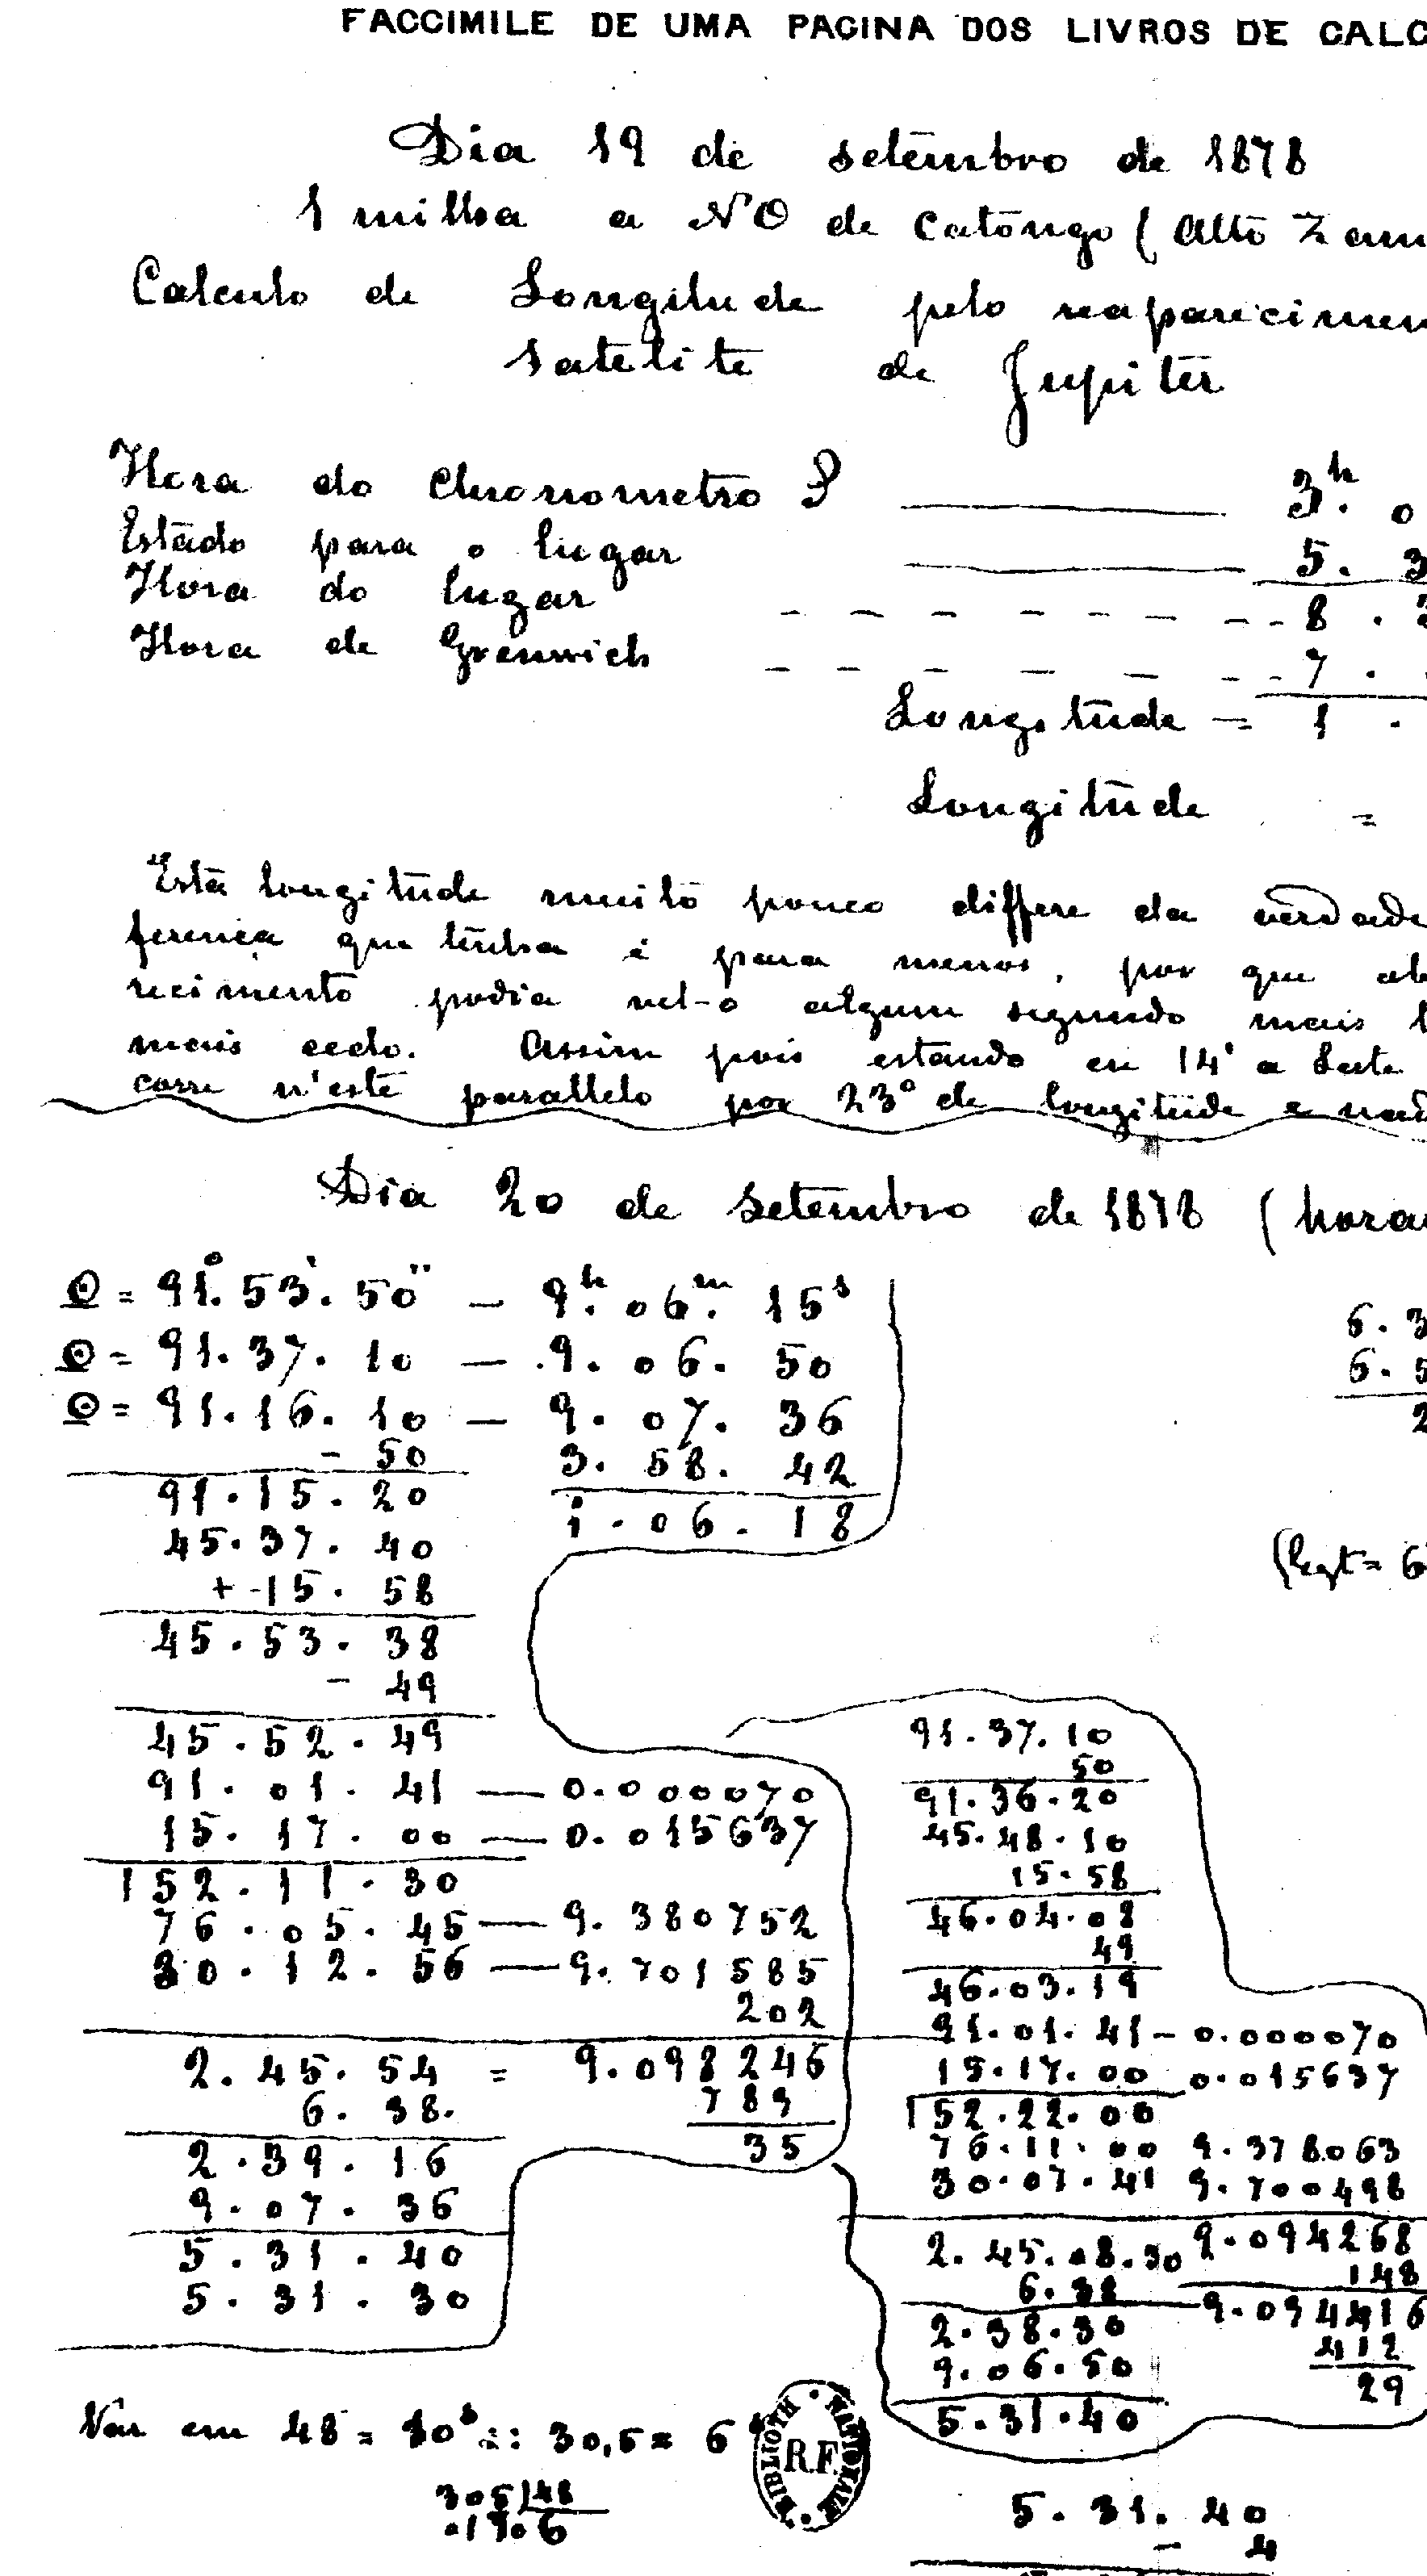 FACCIMILE DE UMA PAGINA DOS LIVROS DE CALC
Dia 19 de setembro de 1878
1 milha a NO de Catongo (Alto Zam
Calculo de Longitude pelo reaparecimen
satelite de Jupiter
Hora do Chronometro 3h. 0
Estado para o lugar 5. 3
Hora do lugar - - - - - - - - 8 . 3
Hora de Grenwich - - - - - - - - 7 .
Longitude = 1 .
Longitude =
Esta longitude muito pouco differe da verdade
ferença que tenha é para menos, por que
recimento podia vel-o algum segundo mais
mais cedo. Assim pois estando eu 14' a Leste
corre n'este parallelo por 23° de longitude e
Dia 20 de setembro de 1878 (hora
= 91°.53'.50" — 9h.06m.15s
= 91.37.10 — 9.06.50
= 91.16.10 — 9.07.36
- 50 3.58.42
91.15.20 1.06.18
45.37.40
+ 15.58
45.53.38
- 49
45.52.49
91.01.41 — 0.000070
15.17.00 — 0.015637
152.11.30
76.05.45 — 9.380752
30.12.56 — 9.701585
202
2.45.54 = 9.098246
6.38. 789
2.39.16 35
9.07.36
5.31.40
5.31.30
6.3
6.5
2
91.37.10
50
91.36.20
45.48.10
15.58
46.04.08
49
46.03.19
91.01.41 - 0.000070
15.17.00 0.015637
152.22.00
76.11.00 9.378063
30.07.41 9.700498
2.45.08.30 9.094268
6.38 148
2.38.30 9.094416
9.06.50 412
5.31.40 29
Var em 48 = 10s :: 30,5 = 6s
305 | 48
.17.6
BIBLIOTH NATIONALE
R.F.
5.31.40
- 4